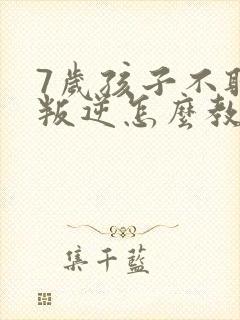 7歲孩子不
叛逆怎麼教
集千藍